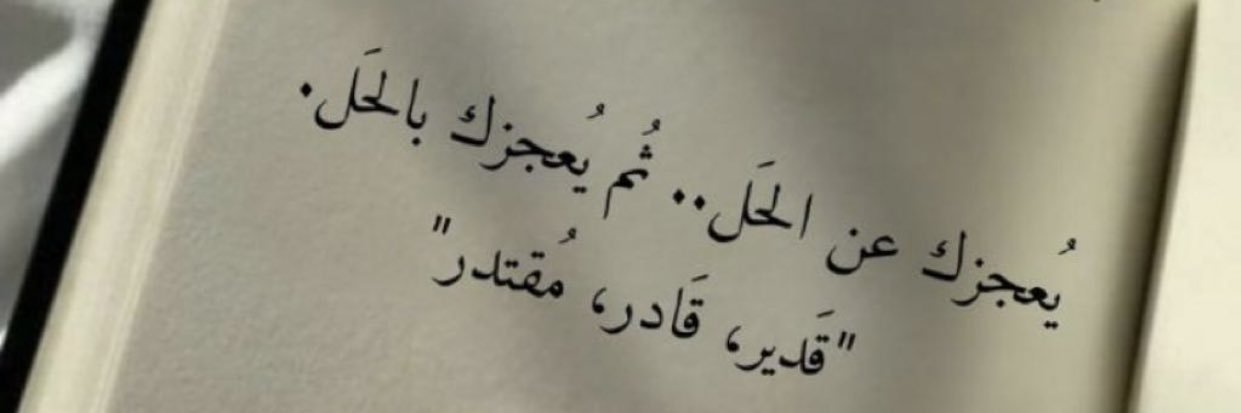 يُعجزك عن الحَل.. ثُم يُعجزك بالحَل.
"قَدير، قَادر، مُقتدر"